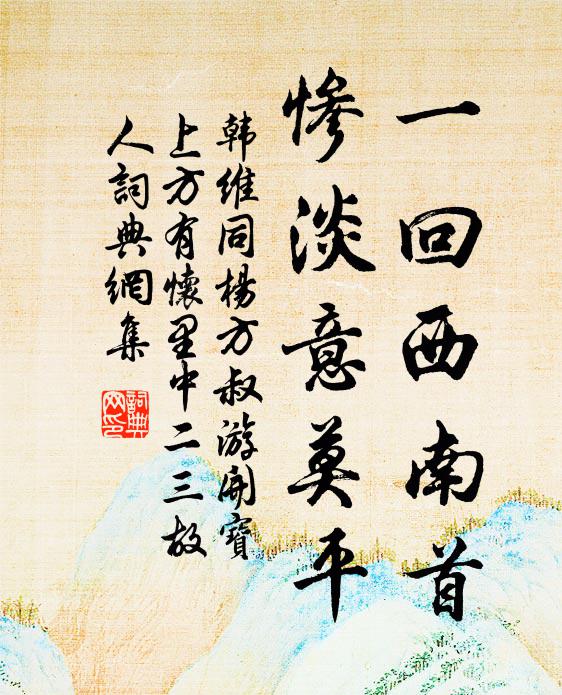 一回西南首
惨淡意莫平
韩维同杨方叔游開寶
上方有懷里中二三故
人詞典網集
詞典网印